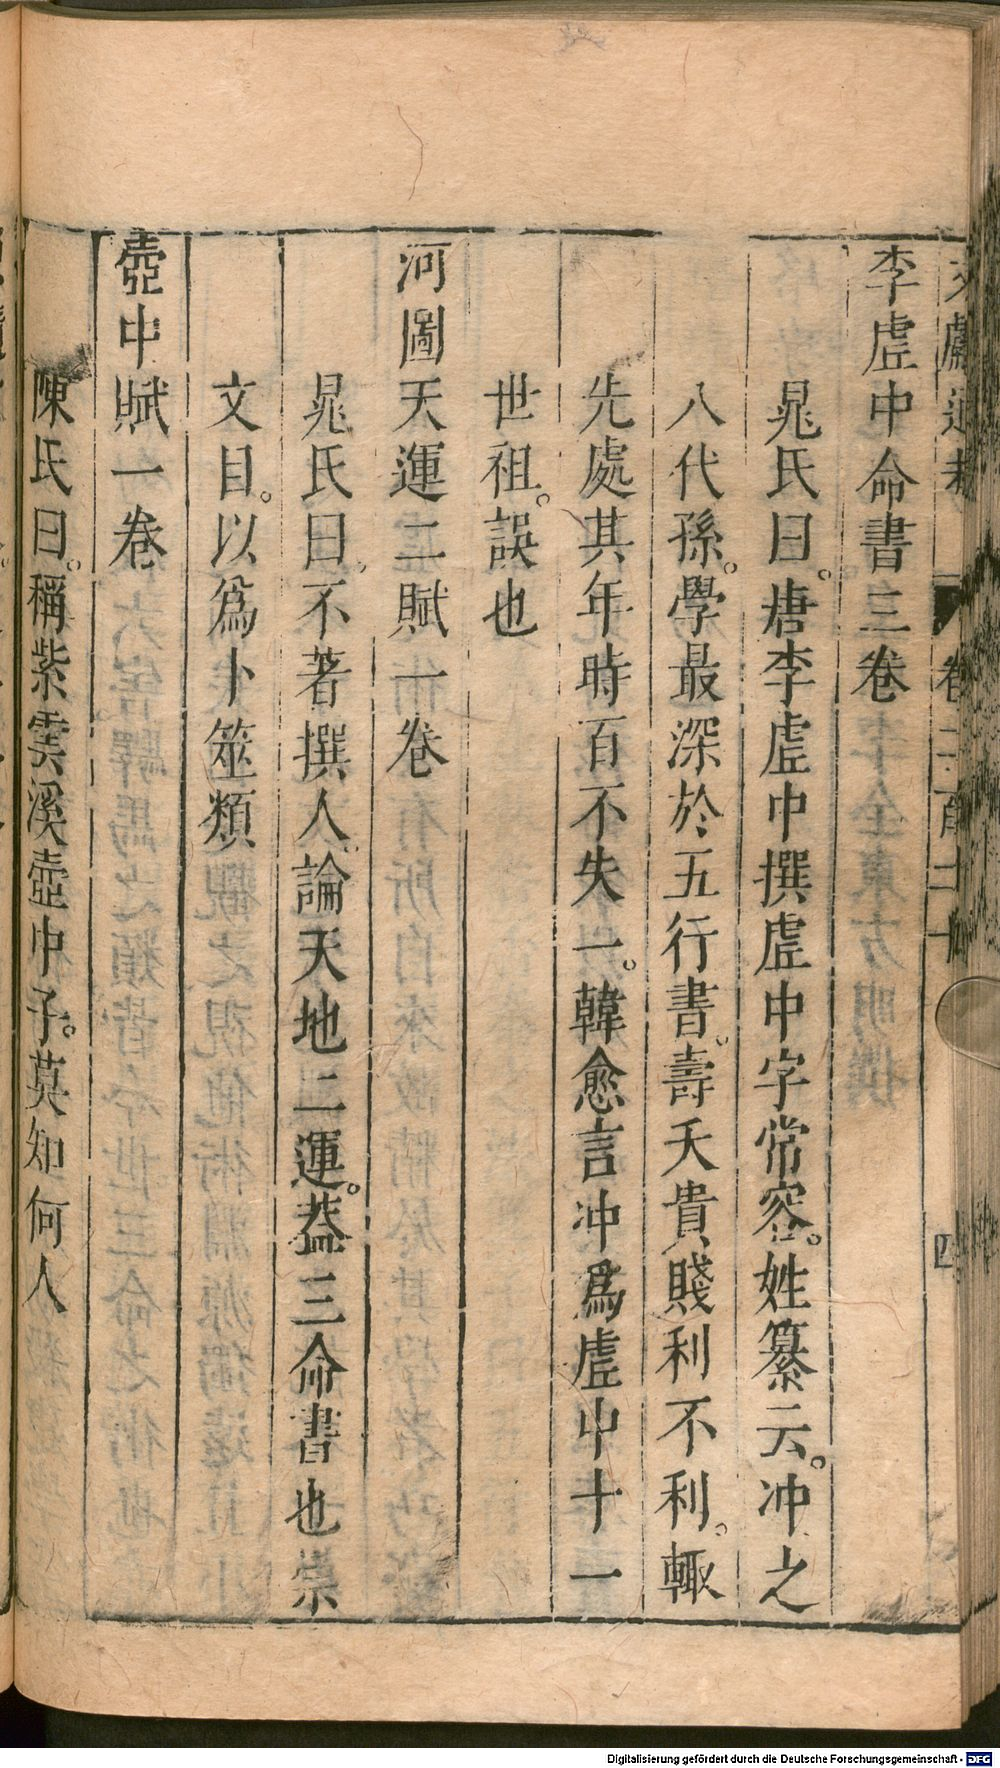 李虛中命書三卷
晁氏曰。唐李虛中撰虛中字常容。姓纂云。沖之
八代孫。學最深於五行書。壽夭貴賤利不利。輙
先處其年時百不失一。韓愈言冲爲虛中十一
世祖。誤也
河圖天運二賦一卷
晁氏曰。不著撰人。論天地二運。葢三命書也崇
文目。以爲卜筮類
壺中賦一卷
陳氏曰。稱紫雲溪壺中子。莫知何人
Digitalisierung gefördert durch die Deutsche Forschungsgemeinschaft - DFG